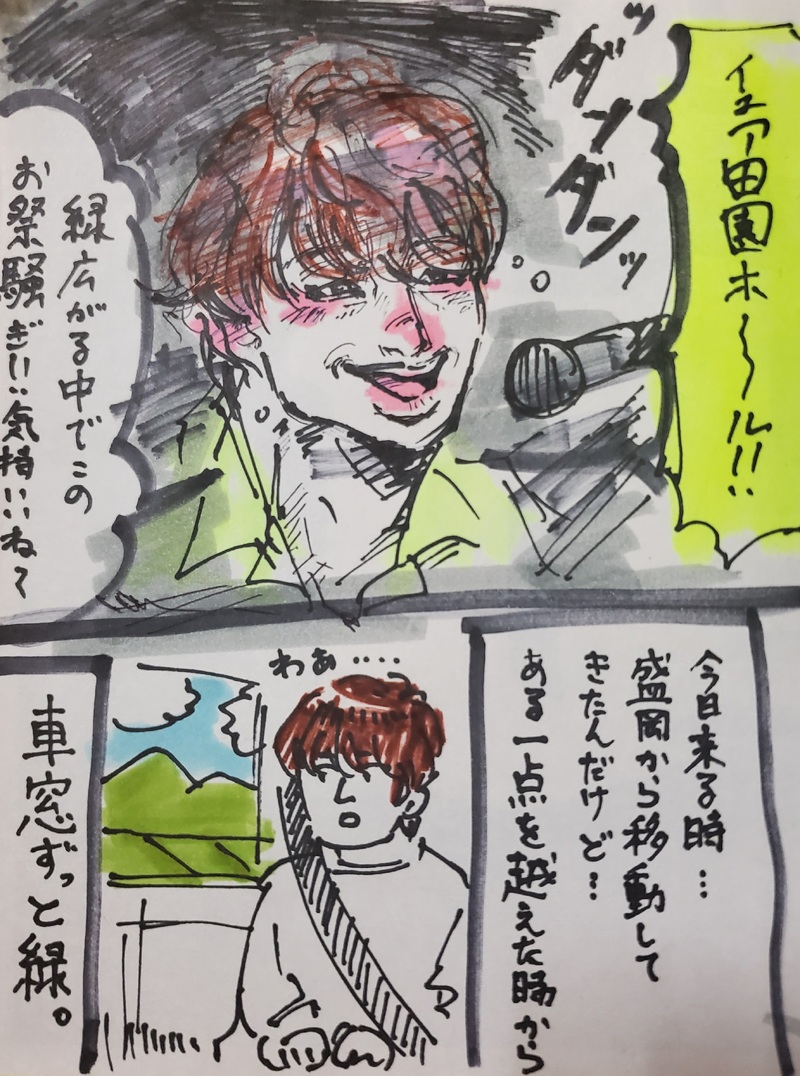 イュア田園ホ〜〜ル!!
ダンダンッ
緑広がる中でこの
お祭騒ぎ!!:気持いいね〜
今日来る時…
盛岡から移動して
きたんだけど…
ある一点を越えた時から
わあ‥‥
車窓ずっと緑。